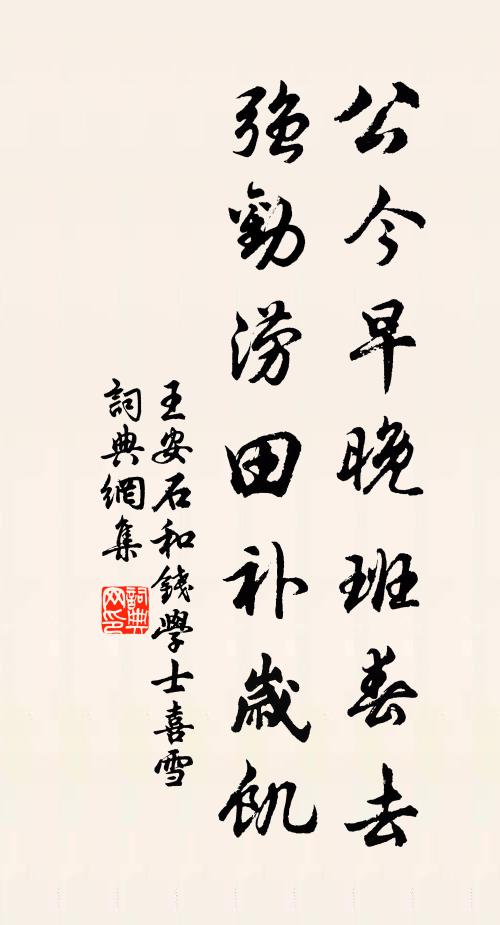 公今早晚班春去
強勸澇田补歲飢
王安石和錢學士喜雪
詞典網集
詞典
网印